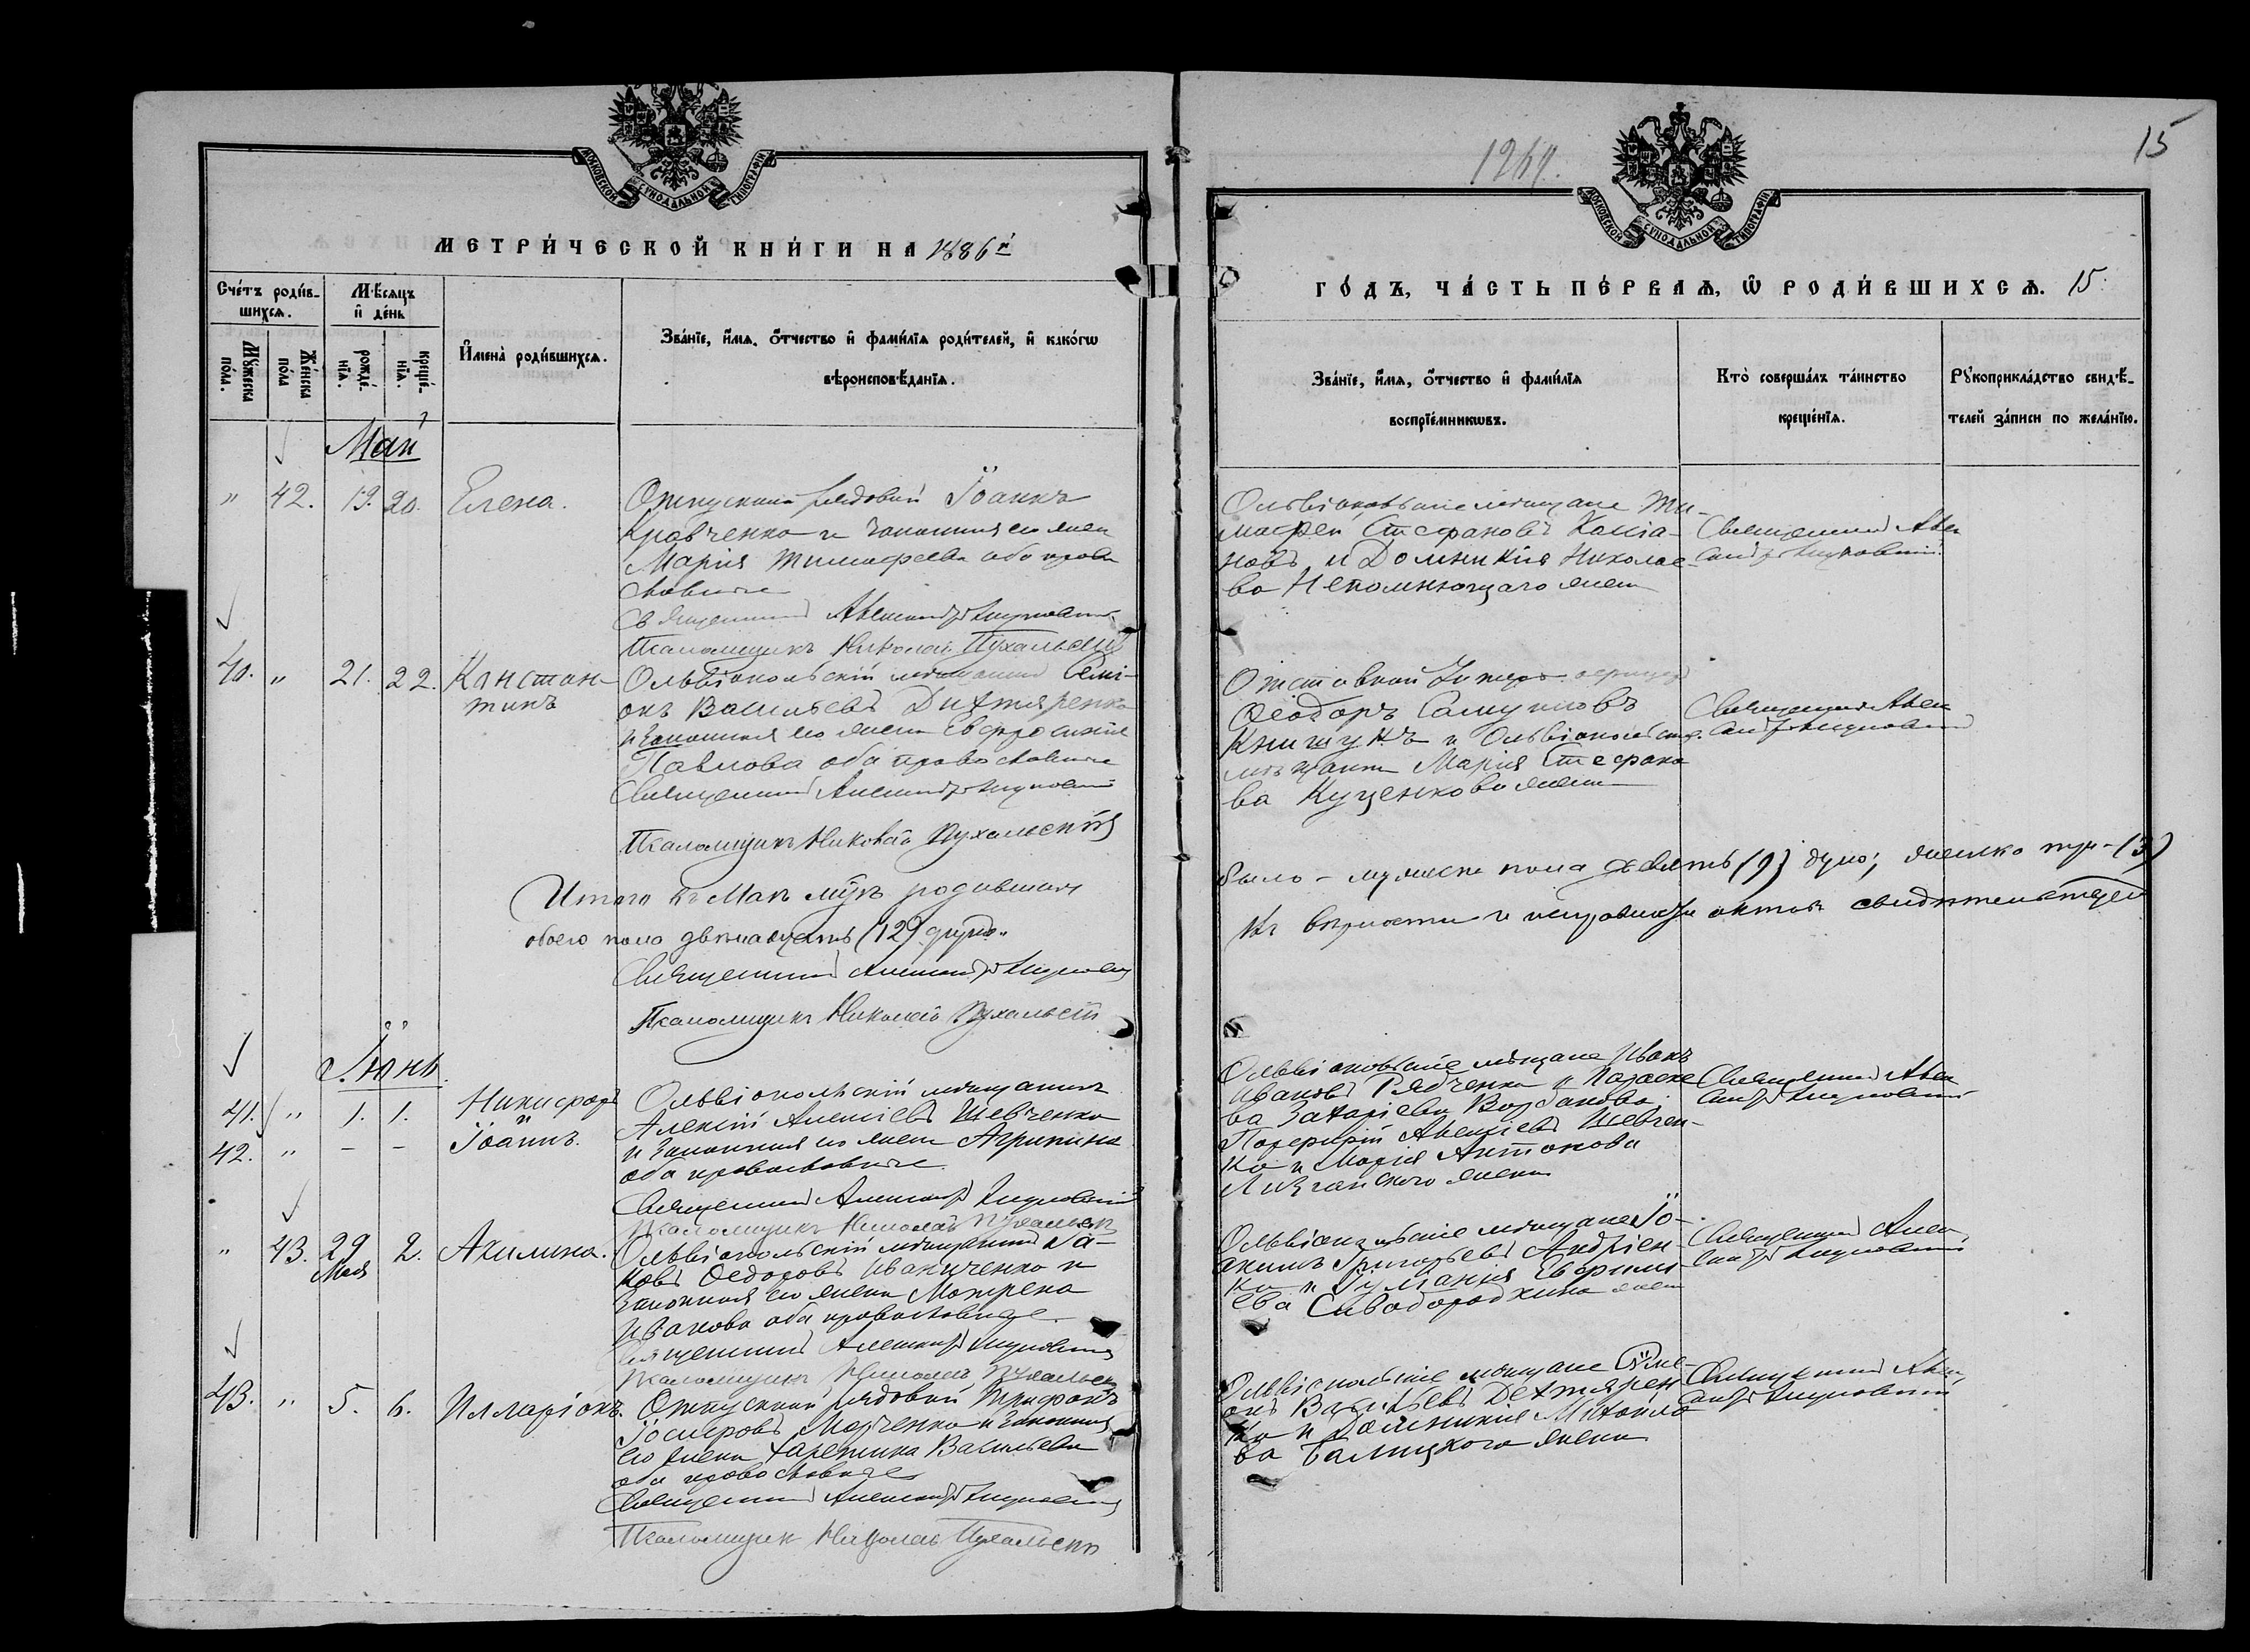 МОСКОВСКОЙ СѴНОДАЛЬНОЙ ТИПОГРАФІИ
МЕТРИ́ЧЕСКОЙ КНИ́ГИ НА 1886 й
Сче́тъ роди́в-
шихсѧ.
М'Ѣсяцъ
и҆ де́нь
И҆мена̀ роди́вшихсѧ.
Зва́нїе, и҆́мѧ, ѻ҆́тчество и҆ фами́лїѧ роди́телей, и҆ како́гѡ
вѣроисповѣ́данїѧ.
Мꙋ́жеска
по́ла.
Же́нска
по́ла
рожде́-
нїѧ.
креще́-
нїѧ.
Май
" 42. 19. 20. Елена.
Отпускной рядовой Іоаннъ
Кравченко и законная его жена
Марія Тимофеева оба право
славные
Священникъ Александръ
Псаломщикъ Николай Пухальскій
40. " 21. 22. Констан-
тинъ
Ольвіопольскій мѣщанинъ Семі-
онъ Васильевъ Дихтяренко
и законная его жена Евфросинія
Павлова оба православные
Священникъ Александръ
Псаломщикъ Николай Пухальскій
Итого въ Маѣ мцѣ родившихся
обоего пола двѣнадцать (12) душъ.
Священникъ Александръ
Псаломщикъ Николай Пухальскій
Іюнь.
41. " 1. 1. Никифоръ
42. " - - Іоаннъ.
Ольвіопольскій мѣщанинъ
Алексій Алексіевъ Шевченко
и законная его жена Агрипина
оба православные
Священникъ Александръ
Псаломщикъ Николай Пухальскій
" 43. 29 Мая 2. Акилина.
Ольвіопольскій мѣщанинъ Іа-
ковъ Федоровъ Иваниченко и
законная его жена Мотрена
Иванова оба православные.
Священникъ Александръ
Псаломщикъ Николай Пухальскій
43. " 5. 6. Илларіонъ.
Отпускной рядовой Трифонъ
Марченко и законная
его жена Харитина Васильева
оба православные
Священникъ Александръ
Псаломщикъ Николай Пухальскій
1264.
15
МОСКОВСКОЙ СѴНОДАЛЬНОЙ ТИПОГРАФІИ
ГО́ДЪ, ЧА́СТЬ ПЕ́РВАѦ, Ѡ҆ РОДИ́ВШИХСѦ. 15.
Зва́нїе, и҆́мѧ, ѻ҆́тчество и҆ фами́лїѧ
воспрїе́мникѡвъ.
Кто̀ соверша́лъ та́инство
креще́нїѧ.
Рꙋкоприкла́дство свидѣ́-
телей за́писи по жела́нїю.
Ольвіопольскіе мѣщане Ти-
мофей Стефановъ Касіа-
новъ и Домникія Николае-
ва Непомнющаго жена
Священникъ Алек
сандръ
Отставной Унтеръ-офицеръ
Феодоръ Самуиловъ
Книшукъ и Ольвіопольск.
мѣщанка Марія Стефано
ва Куценкова жена
Священникъ Алек
сандръ
было - мужеска пола девять (9) душъ; женска три - (3)
Въ вѣрности и исправности актовъ свидѣтельствуемъ
Ольвіопольскіе мѣщане Иванъ
Ивановъ Рядченко и Параске
ва Захаріева Богданова.
Порфирій Алексіевъ Шевчен-
ко и Марія Антонова
жена
Священникъ Алек
сандръ
Ольвіопольскіе мѣщане Іо-
акимъ Григорьевъ Андріен-
ко и Іуліанія Ефими-
ева Сивобородкина жена
Священникъ Алек
сандръ
Ольвіопольскіе мѣщане Симе-
онъ Васильевъ Дехтярен-
ко и Домникія Михайло
ва Балицкого жена
Священникъ Алек
сандръ